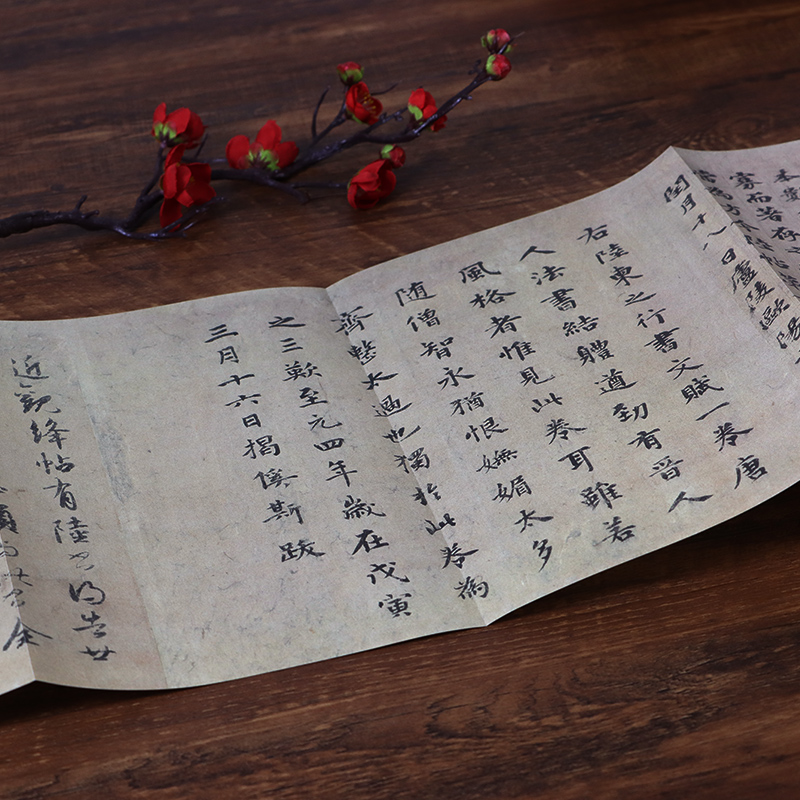 寡而著存
閏月十八日廬陵歐陽
右陸東之行書文賦一卷唐
人法書結體遒勁有晉人
風格者惟見此卷耳雖若
隨僧智永猶恨嫵媚太多
齊整太過也獨於此卷為
之三歎至元四年歲在戊寅
三月十六日揭傒斯跋
近觀絳帖有陸